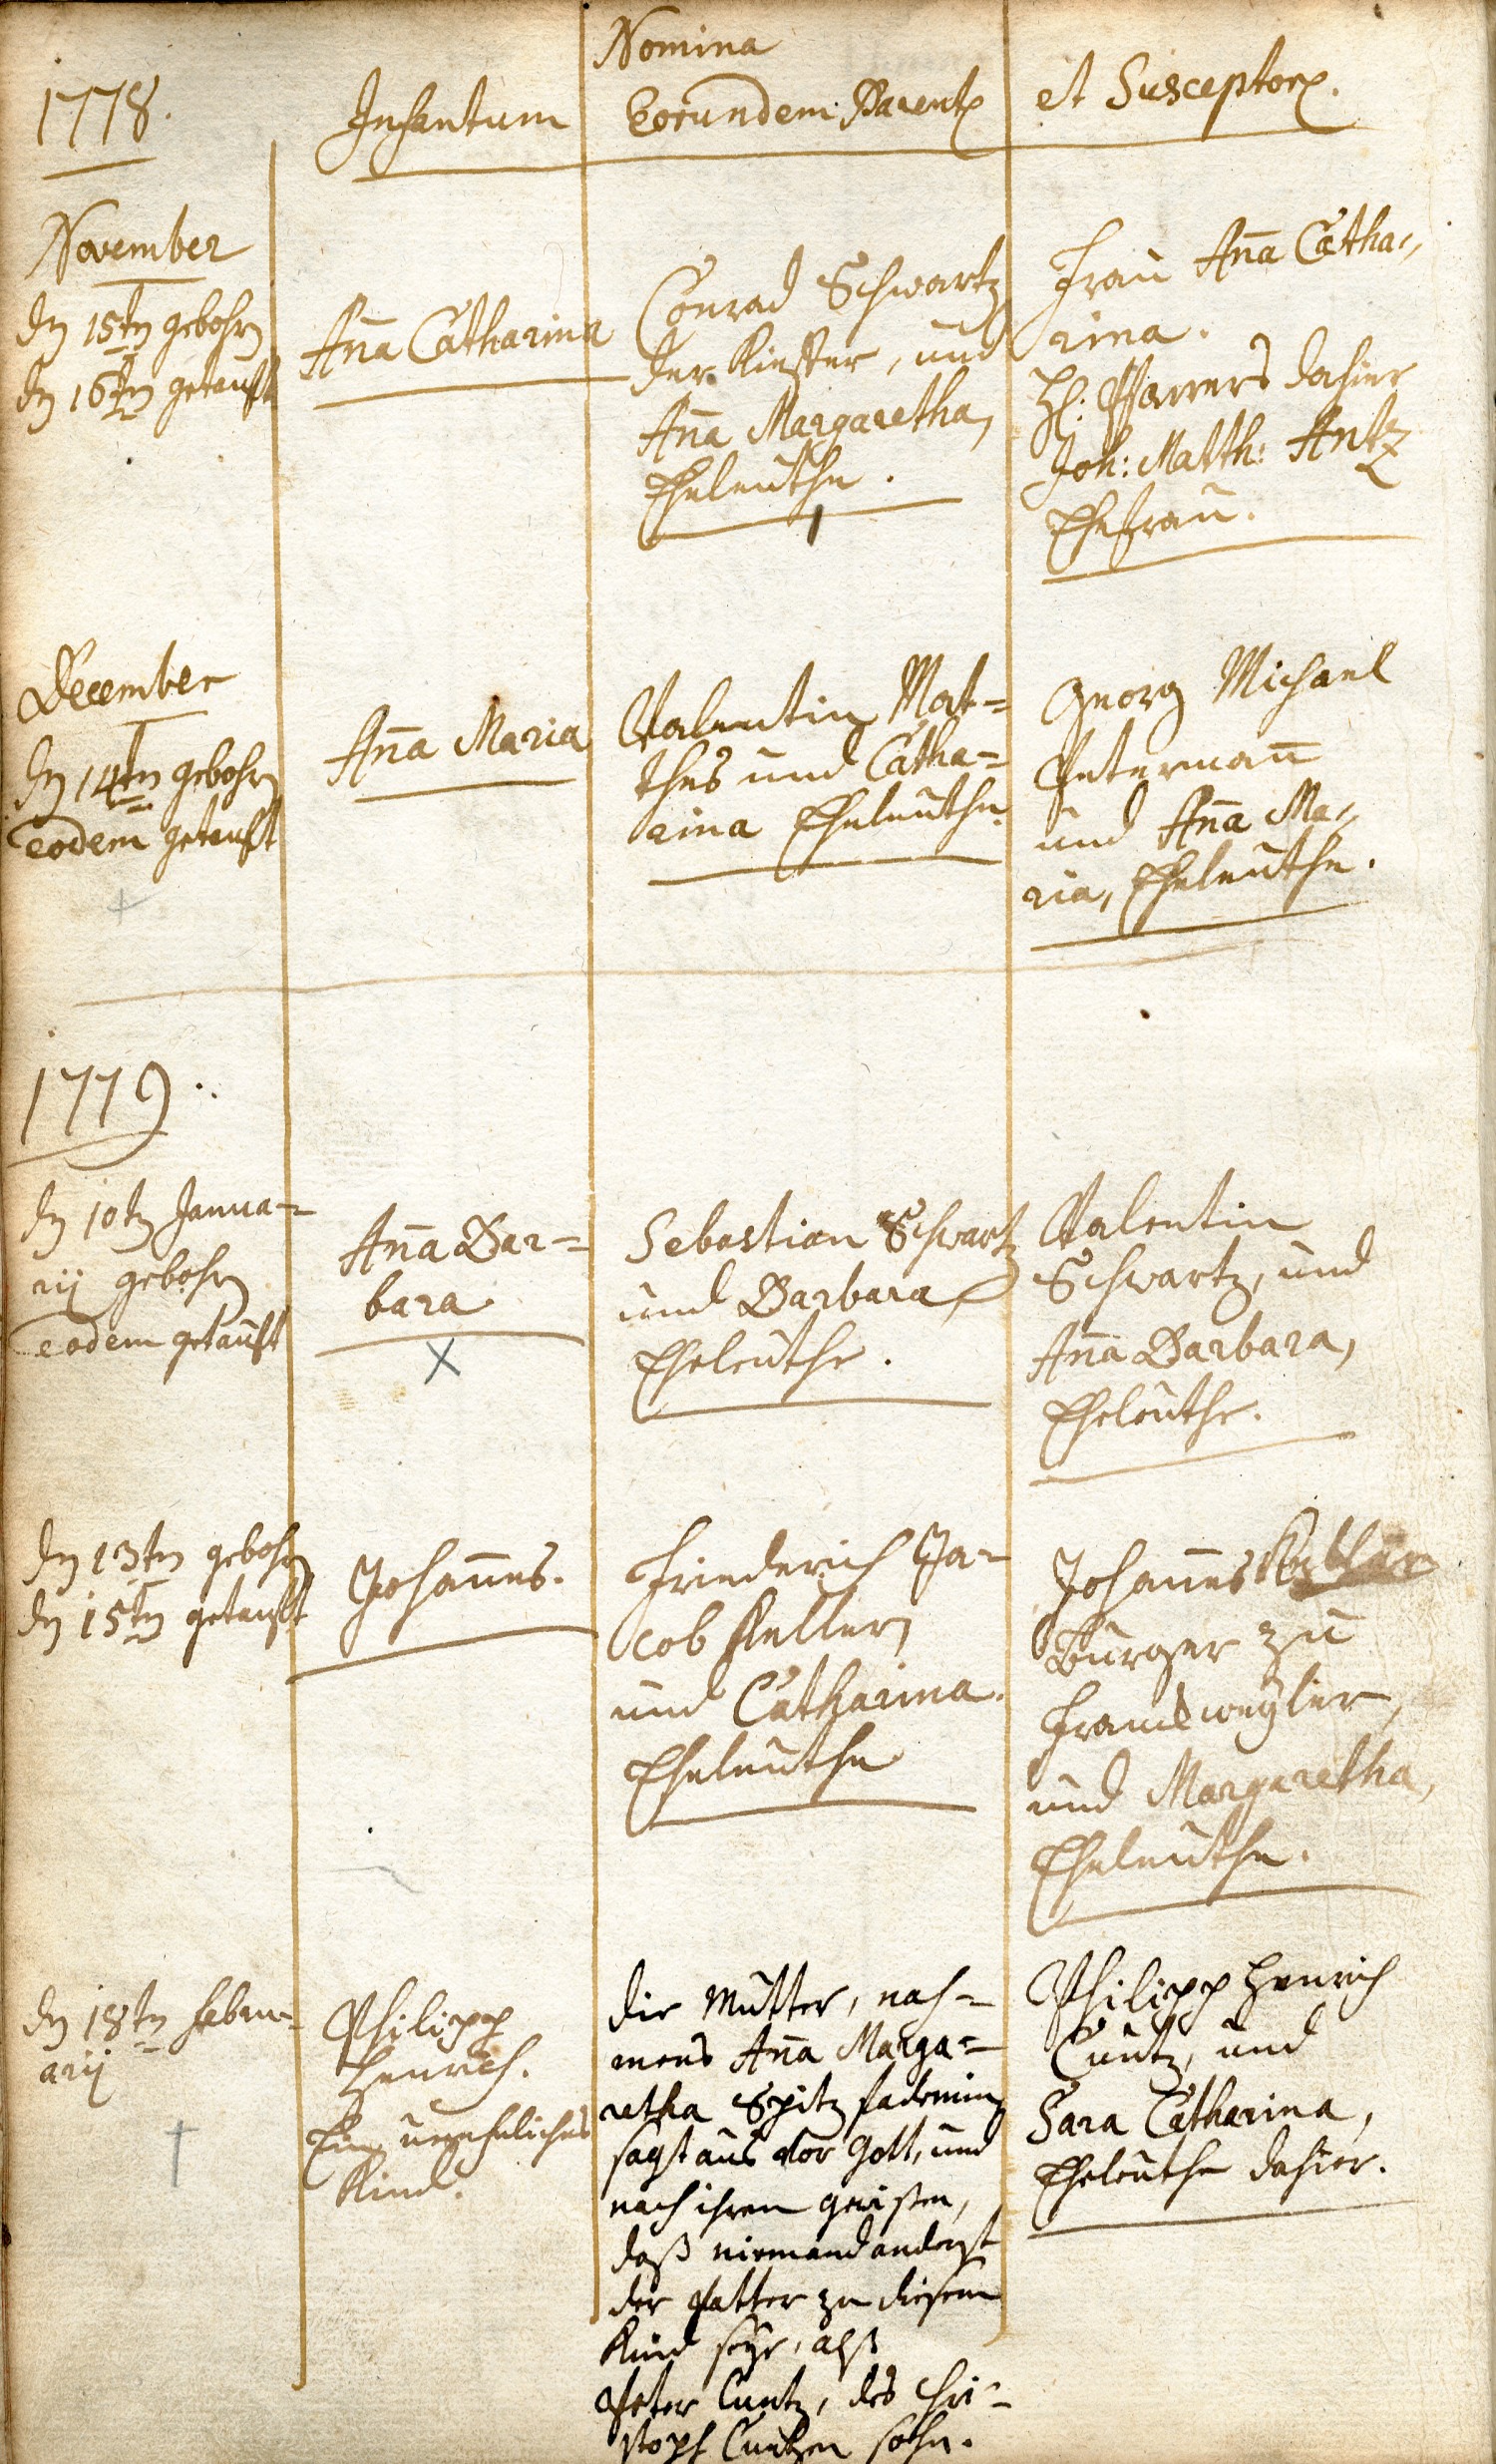 Nomina
1778.
Infantum
Eorundem Parent.
et Susceptor.
November
dn 15tn gebohrn
dn 16tn getauft
Anna Catharina
Conrad Schwartz
der Kiefter, und
Anna Margaretha,
Eheleuthe.
Frau Anna Catha-
rina.
H: Pfarrers dahier
Joh: Matth: Antz
Ehefrau.
December
dn 14tn gebohrn
eodem getauft
Anna Maria
Valentin Mat=
thes und Catha=
rina Eheleuthe.
Georg Michael
und Anna Ma-
ria, Eheleuthe.
1779.
dn 10tn Janua=
rij gebohrn
eodem getauft
Anna Bar=
bara
Sebastian Schwartz
und Barbara
Eheleuthe.
Valentin
Schwartz, und
Anna Barbara,
Eheleuthe.
dn 13tn gebohrn
dn 15tn getauft
Johannes.
Friederich Ja=
cob Keller,
und Catharina.
Eheleuthe
Johannes
Burger zu
Franckweyler,
und Margaretha,
Eheleuthe.
dn 18tn Febru=
arij
Philipp
Henrich.
Ein unehliches
Kind.
die Mutter, nah=
mens Anna Marga=
retha Spitzfademin,
sagt aus vor Gott, und
nach ihrem gewißen,
daß niemand anderst
der Vatter zu diesem
Kind seye, alß
Peter Cuntz, des Chri=
stoph Cuntzen sohn.
Philipp Henrich
Cuntz, und
Sara Catharina,
Eheleuthe dahier.